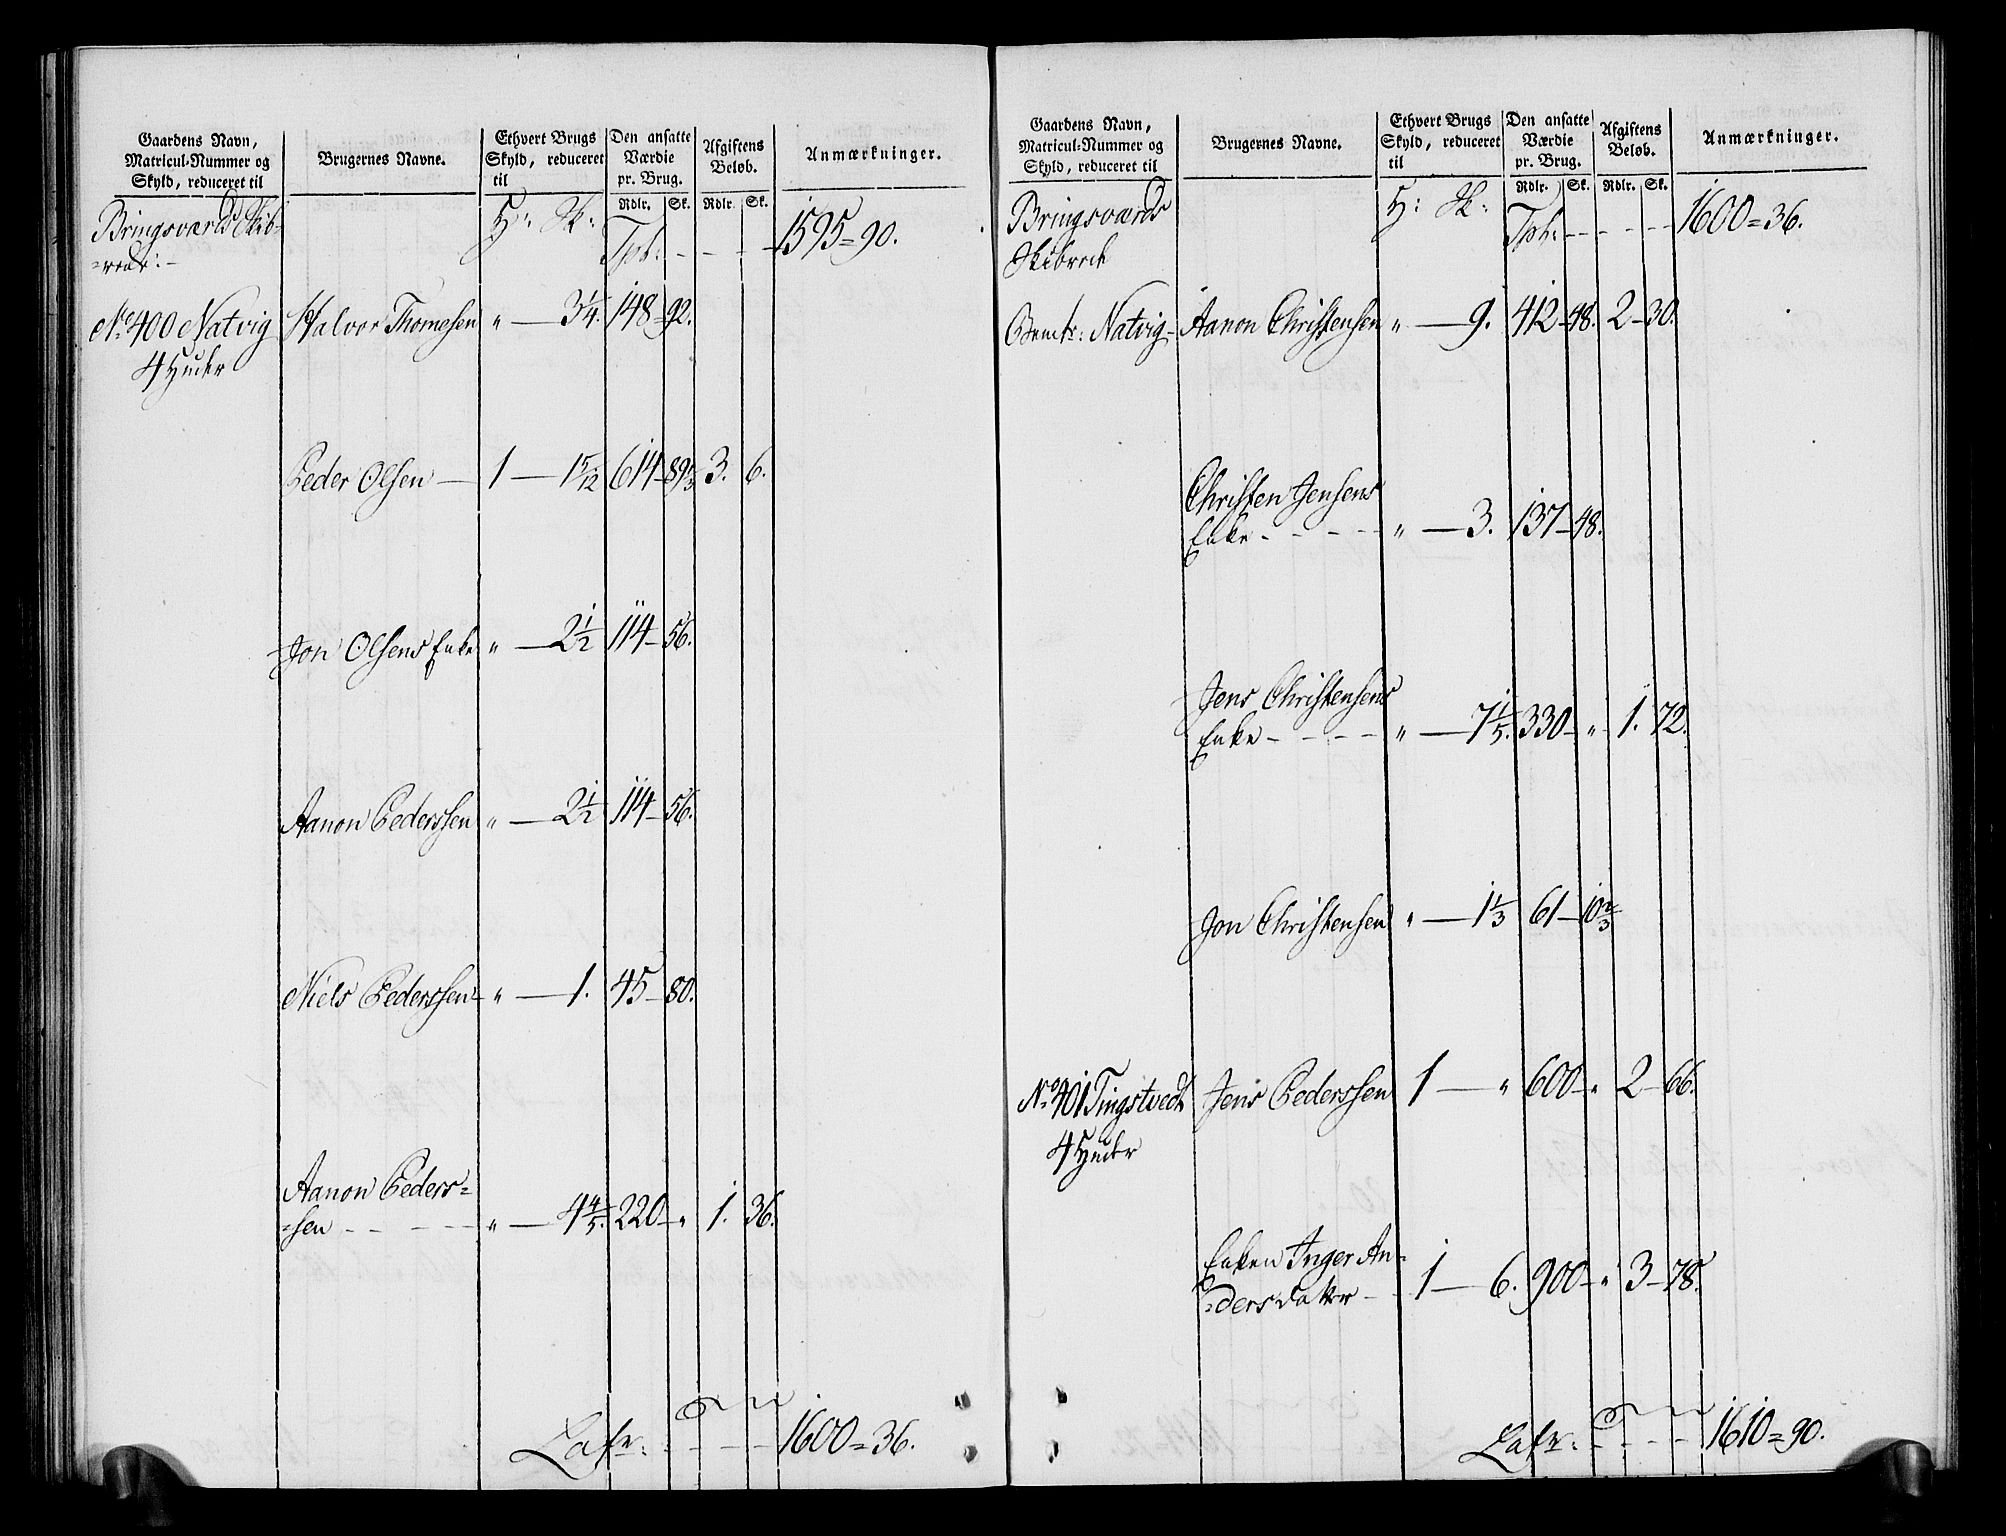 Gaardens Navn,
Matricul-Nummer og
Skyld, reduceret til
Brugernes Navne.
Ethvert Brugs
Skyld, reduceret
til
Den ansatte
Værdie
pr. Brug.
Afgiftens
Beløb.
Anmærkninger.
Rdlr. Sk. Rdlr. Sk.
Bringsværds Skib-
=rede:
H: Sk: Tpt: - - - - 1595=90.
No 400 Natvig Halvor Thomesen " — 3 1/4. 148-92.
4 Huder
Peder Olsen — 1 — 1 5/12 614-89 1/3 3. 6.
Jon Olsens Enke " — 2 1/2 114-56.
Aanon Pederssen " — 2 1/2 114-56.
Niels Pederssen " — 1. 45-80.
Aanon Peders=
=sen - - - - " — 4 4/5. 220-" 1. 36.
Lafr: - - - - 1600=36.
Gaardens Navn,
Matricul-Nummer og
Skyld, reduceret til
Brugernes Navne.
Ethvert Brugs
Skyld, reduceret
til
Den ansatte
Værdie
pr. Brug.
Afgiftens
Beløb.
Anmærkninger.
Rdlr. Sk. Rdlr. Sk.
Bringsværds
Skibrede
H: Sk: Tpt: - - - - 1600=36.
Bemte: Natvig- Aanon Christensen " — 9. 412-48. 2-30.
Christen Jensens
Enke - - - - " — 3. 137-48.
Jens Christensens
Enke - - - - " — 7 1/5. 330-" 1. 72.
Jon Christensen " — 1 1/3 61-10 2/3
No 401 Tingstvedt Jens Pederssen 1 — " 600-" 2-66.
4 Huder
Enken Inger An-
=dersdatter - - 1 — 6. 900-" 3-78.
Lafr: - - - - 1610=90.